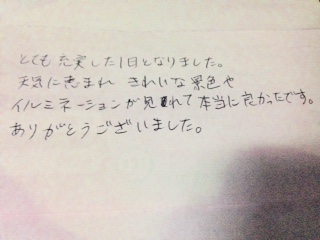 とても充実した1日となりました。
天気に恵まれ きれいな景色や
イルミネーションが見れて本当に良かったです。
ありがとうございました。